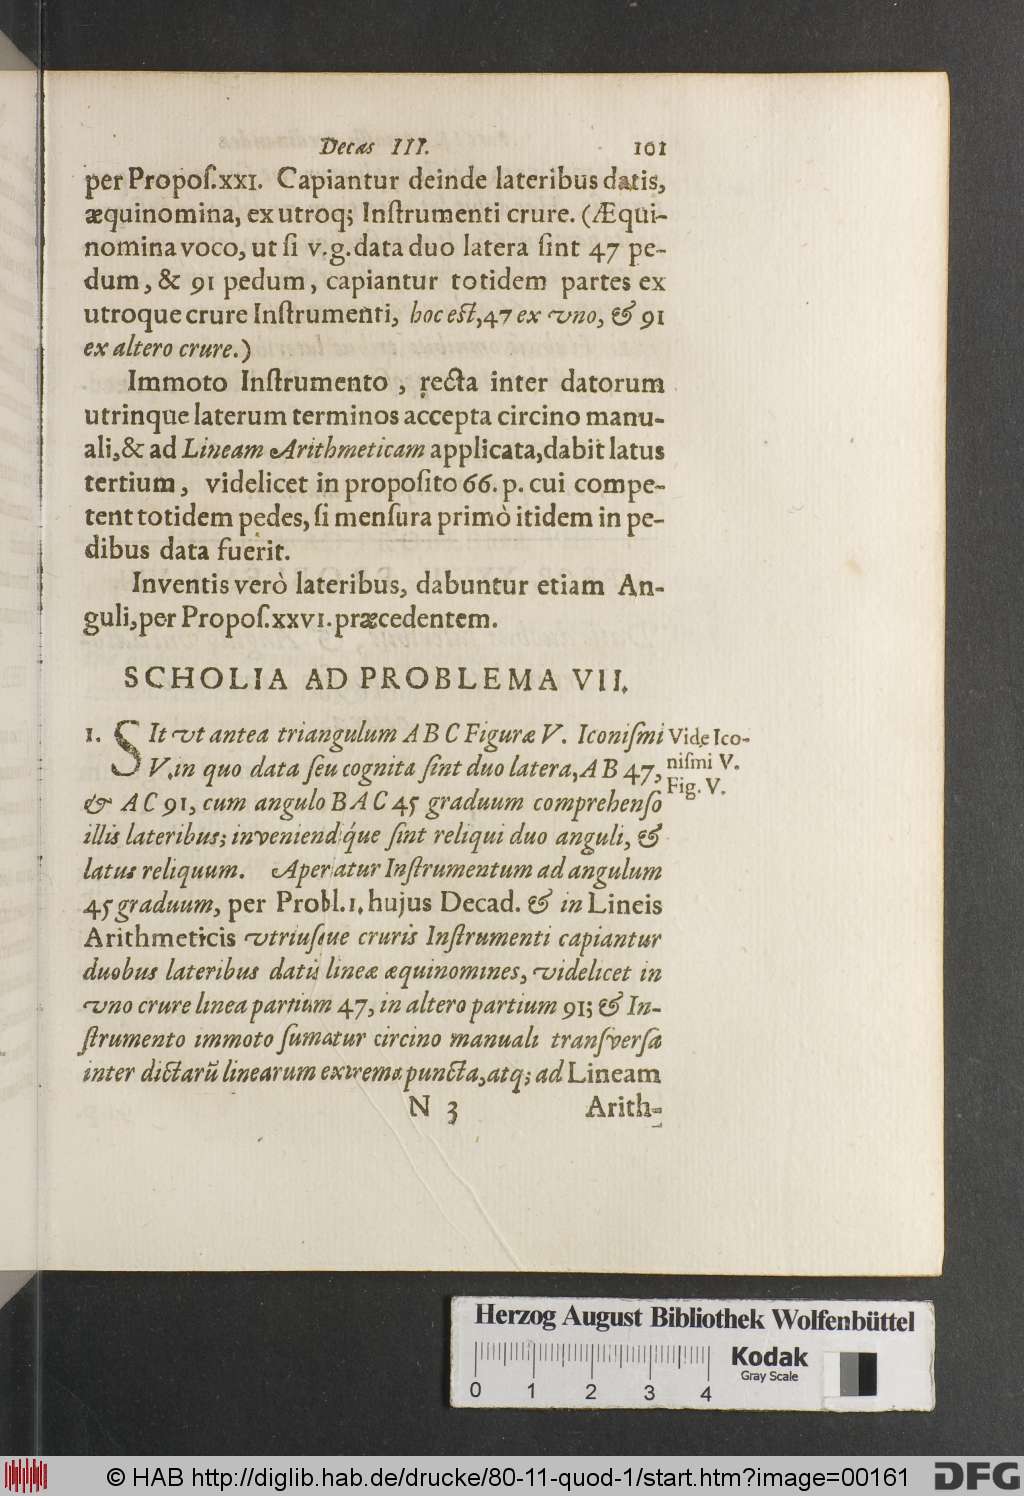 Decas III. 101
per Propoſ.xxı. Capiantur deinde lateribus datis,
æquinomina, ex utroq; Inſtrumenti crure. (Æqui-
nomina voco, ut ſi v.g. data duo latera ſint 47 pe-
dum, & 91 pedum, capiantur totidem partes ex
utroque crure Inſtrumenti, hoc eſt, 47 ex vno, & 91
ex altero crure.)
Immoto Inſtrumento, recta inter datorum
utrinque laterum terminos accepta circino manu-
ali, & ad Lineam Arithmeticam applicata, dabit latus
tertium, videlicet in propoſito 66. p. cui compe-
tent totidem pedes, ſi menſura primò itidem in pe-
dibus data fuerit.
Inventis verò lateribus, dabuntur etiam An-
guli, per Propoſ.xxvı. præcedentem.
SCHOLIA AD PROBLEMA VII.
1. SIt vt antea triangulum A B C Figuræ V. Iconiſmi
V. in quo data ſeu cognita ſint duo latera, A B 47,
& A C 91, cum angulo B A C 45 graduum comprehenſo
illis lateribus; inveniendíque ſint reliqui duo anguli, &
latus reliquum. Aperiatur Inſtrumentum ad angulum
45 graduum, per Probl.1. hujus Decad. & in Lineis
Arithmeticis vtriuſque cruris Inſtrumenti capiantur
duobus lateribus datis lineæ æquinomines, videlicet in
vno crure linea partium 47, in altero partium 91; & In-
ſtrumento immoto ſumatur circino manuali tranſverſa
inter dictarū linearum extrema puncta, atq; ad Lineam
N 3 Arith-
Vide Ico-
niſmi V.
Fig. V.
Herzog August Bibliothek Wolfenbüttel
Kodak
Gray Scale
0 1 2 3 4
© HAB http://diglib.hab.de/drucke/80-11-quod-1/start.htm?image=00161
DFG